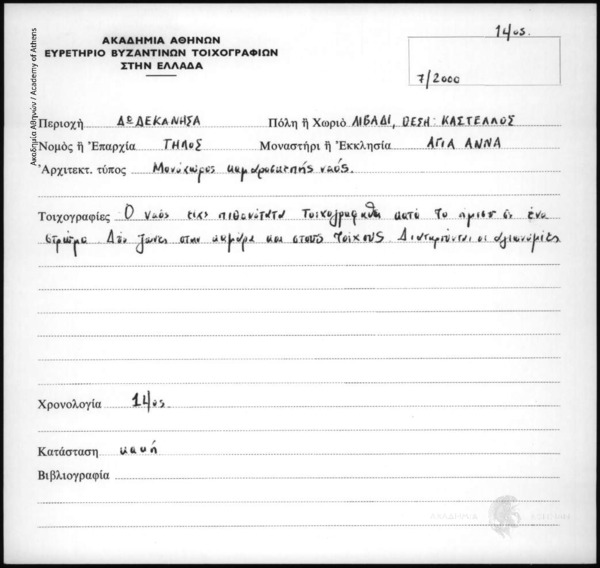 14ος.
ΑΚΑΔΗΜΙΑ ΑΘΗΝΩΝ
ΕΥΡΕΤΗΡΙΟ ΒΥΖΑΝΤΙΝΩΝ ΤΟΙΧΟΓΡΑΦΙΩΝ
ΣΤΗΝ ΕΛΛΑΔΑ
7/2000
Ακαδημία Αθηνών / Academy of Athens
Περιοχή ΔωΔΕΚΑΝΗΣΑ Πόλη ἤ Χωριό ΛΙΒΑΔΙ, ΘΕΣΗ: ΚΑΣΤΕΛΛΟΣ
Νομὸς ἤ Ἐπαρχία ΤΗΛΟΣ Μοναστήρι ἤ Ἐκκλησία ΑΓΙΑ ΑΝΝΑ
Ἀρχιτεκτ. τύπος Μονόχωρος καμαροσκεπής ναός.
Τοιχογραφίες Ο ναός είχε πιθανότατα τοιχογραφηθεί κατά το ήμισυ σε ένα
στρώμα. Δύο ζώνες στην καμάρα και στους τοίχους. Διατηρούνται οι
Χρονολογία 14ος.
Κατάσταση κακή
Βιβλιογραφία
ΑΚΑΔΗΜΙΑ ΑΘΗΝΩΝ